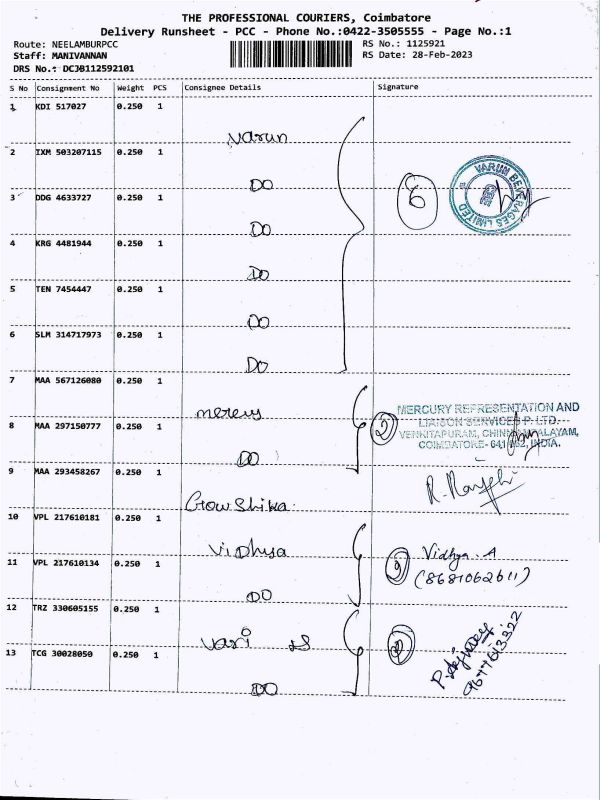 THE PROFESSIONAL COURIERS, Coimbatore
Delivery Runsheet - PCC - Phone No.:0422-3505555 - Page No.:1
Route: NEELAMBURPCC
RS No.: 1125921
Staff: MANIVANNAN
RS Date: 28-Feb-2023
DRS No.: DCJB112592101
S No Consignment No Weight PCS Consignee Details Signature
1 KDI 517027 0.250 1
Varun
2 IXM 503207115 0.250 1
DO
6
VARUN BEVERAGES LIMITED
3 DDG 4633727 0.250 1
DO
4 KRG 4481944 0.250 1
DO
5 TEN 7454447 0.250 1
DO
6 SLM 314717973 0.250 1
DO
7 MAA 567126080 0.250 1
mercury
MERCURY REPRESENTATION AND
LIAISON SERVICES P. LTD.
8 MAA 297150777 0.250 1
2
VENKITAPURAM, CHINNIAMPALAYAM,
COIMBATORE- 641 062, INDIA.
DO
9 MAA 293458267 0.250 1
Gowshika
10 VPL 217610181 0.250 1
Vidhya
2
Vidhya. A
11 VPL 217610134 0.250 1
(8681062611)
DO
12 TRZ 330605155 0.250 1
Vari
2
13 TCG 30028050 0.250 1
9677613322
DO